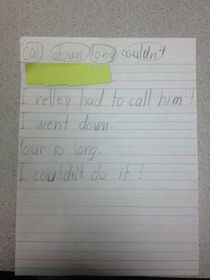 call down long couldn't
I relley had to call him"!
I went down.
Your so long.
I couldn't do it?